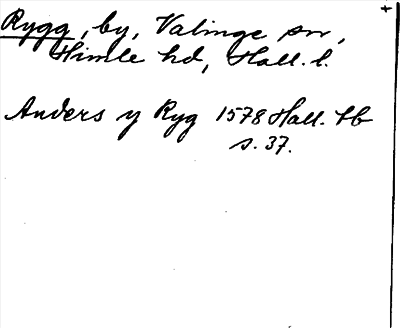 Rygg, by, Valinge sn,
Himle hd, Hall. l.
Anders y Ryg 1578 Hall. tb
s. 37.